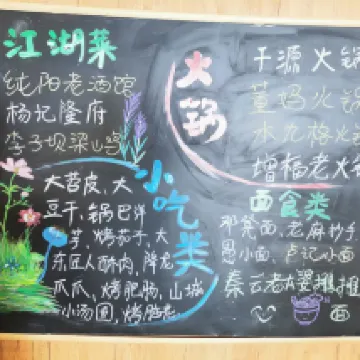 江湖菜
纯阳老酒馆
杨记隆府
李子坝梁山鸡
火锅
于源 火锅
董妈火锅
水九格火锅
增福老火锅
小吃类
大苕皮、大
豆干、锅巴洋
芋、烤茄子、大
东匠人酥肉、降龙
爪爪、烤肥肠、山城
小汤圆、烤脑花
面食类
邓凳面、老麻抄手
恩小面、卢记小面
秦云老太婆摊摊
面